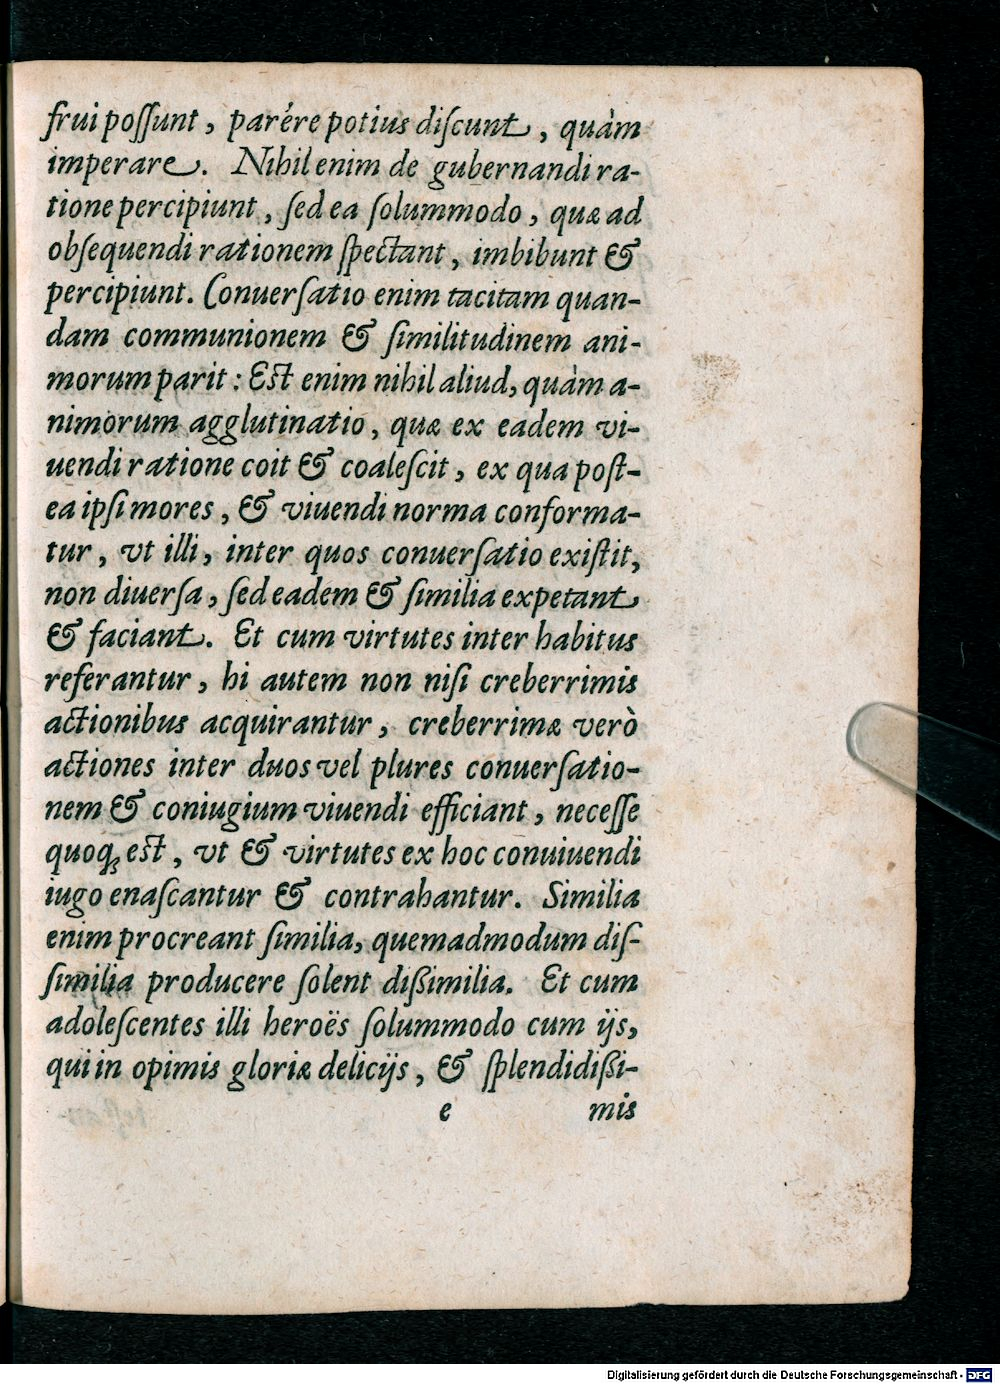 frui poſſunt, parére potius diſcunt, quàm
imperare. Nihil enim de gubernandi ra-
tione percipiunt, ſed ea ſolummodo, quæ ad
obſequendi rationem ſpectant, imbibunt &
percipiunt. Conuerſatio enim tacitam quan-
dam communionem & ſimilitudinem ani-
morum parit: Eſt enim nihil aliud, quàm a-
nimorum agglutinatio, quæ ex eadem vi-
uendi ratione coit & coaleſcit, ex qua poſt-
ea ipſi mores, & viuendi norma conforma-
tur, vt illi, inter quos conuerſatio exiſtit,
non diuerſa, ſed eadem & ſimilia expetant
& faciant. Et cum virtutes inter habitus
referantur, hi autem non niſi creberrimis
actionibus acquirantur, creberrimæ verò
actiones inter duos vel plures conuerſatio-
nem & coniugium viuendi efficiant, neceſſe
quoqꝫ eſt, vt & virtutes ex hoc conuiuendi
iugo enaſcantur & contrahantur. Similia
enim procreant ſimilia, quemadmodum diſ-
ſimilia producere ſolent dißimilia. Et cum
adoleſcentes illi heroës ſolummodo cum ijs,
qui in opimis gloriæ delicijs, & ſplendidißi-
e mis
Digitalisierung gefördert durch die Deutsche Forschungsgemeinschaft - DFG